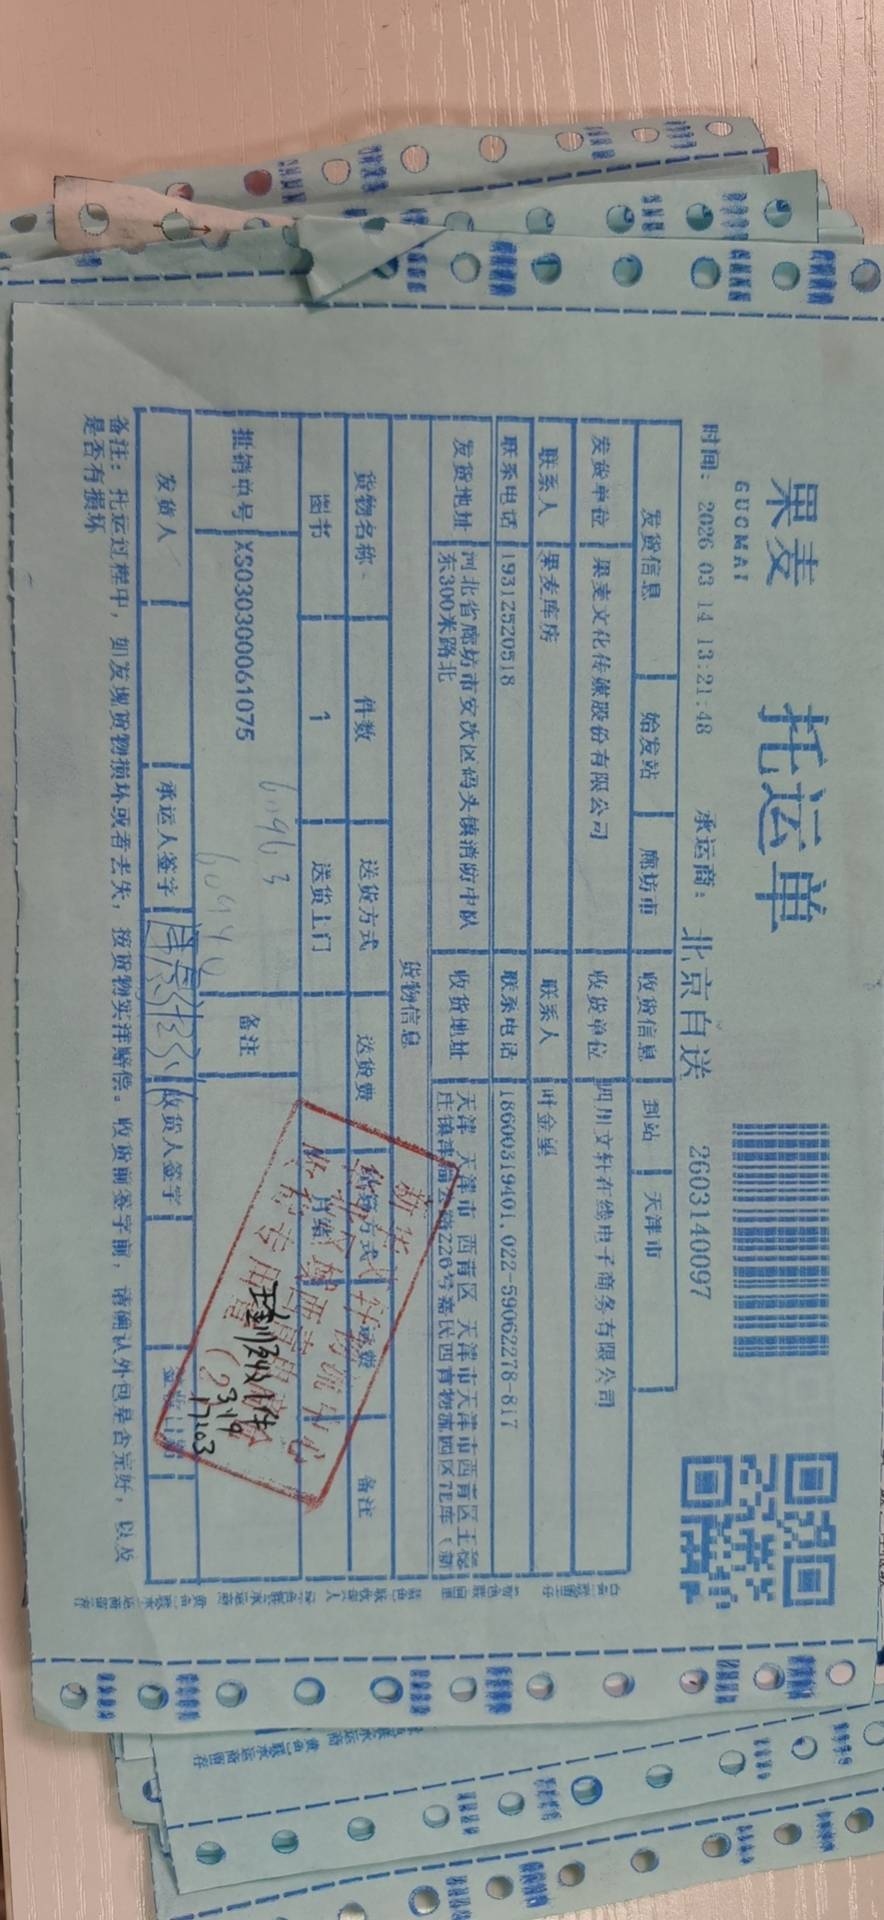 果麦
GUOMAI
托运单
2603140097
时间: 2026 03 14 13:21:48
承运商: 北京自送
发货信息 始发站 廊坊市 收货信息 到站 天津市
发货单位 果麦文化传媒股份有限公司 收货单位 四川文轩在线电子商务有限公司
联系人 果麦库房 联系人
联系电话 19312520518 联系电话 18600319401,022-59062278-817
发货地址 河北省廊坊市安次区码头镇消防中队
东300米路北
收货地址 天津 天津市 西青区 天津市天津市西青区王稳
庄镇津 226号嘉民西青物流园区7E库(新
货物信息
货物名称 件数 送货方式 送货费 结算方式 运费 备注
图书 1 送货上门 月结
批销单号 XS030300061075 备注
60963
发货人 承运人签字 收货人签字
备注: 托运过程中, 如发现货物损坏或者丢失, 按货物实洋赔偿。收货前签字前, 请确认外包是否完好, 以及
是否有损坏
3.19
17203